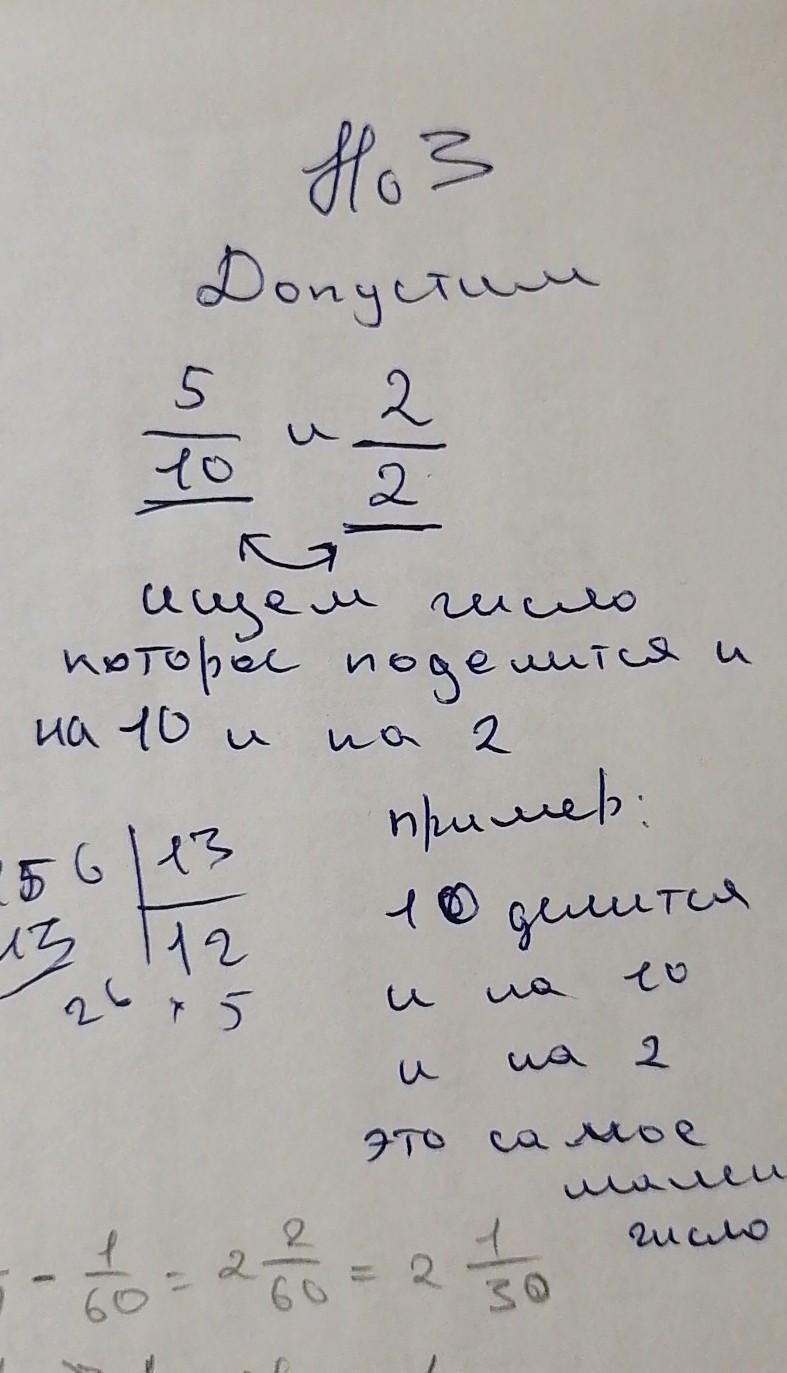 НоЗ
Допустим
5/10 и 2/2
ищем число
которое поделится и
на 10 и на 2
пример:
56 | 13
13 | 12
26 × 5
10 делится
и на 10
и на 2
это самое
мален
число
- 1/60 = 2 2/60 = 2 1/30